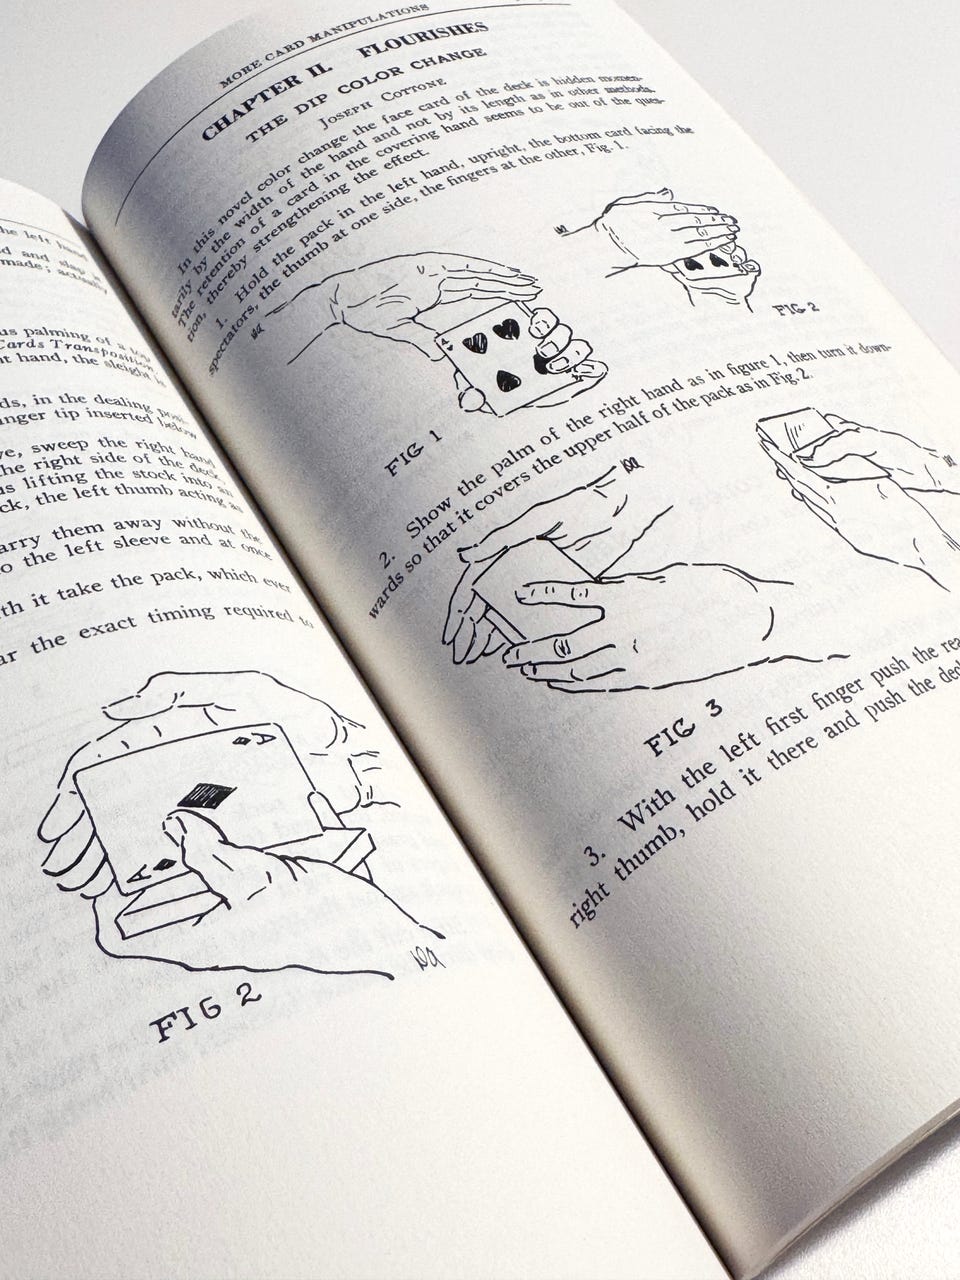 he left hand
d and slap is
made; actually,
us palming of a
Cards Transposition,
ht hand, the sleight is
ds, in the dealing posi-
nger tip inserted below
ve, sweep the right hand
the right side of the deck,
us lifting the stock into an
ck, the left thumb acting as
arry them away without the
o the left sleeve and at once
th it take the pack, which ever
ar the exact timing required to
A
A
FIG 2
MORE CARD MANIPULATIONS
CHAPTER II. FLOURISHES
THE DIP COLOR CHANGE
JOSEPH COTTONE
In this novel color change the face card of the deck is hidden momen-
tarily by the width of the hand and not by its length as in other methods.
The retention of a card in the covering hand seems to be out of the ques-
tion, thereby strengthening the effect.
1. Hold the pack in the left hand, upright, the bottom card facing the
spectators, the thumb at one side, the fingers at the other, Fig. 1.
4
4
FIG 1
FIG 2
2. Show the palm of the right hand as in figure 1, then turn it down-
wards so that it covers the upper half of the pack as in Fig. 2.
FIG 3
3. With the left first finger push the
right thumb, hold it there and push the